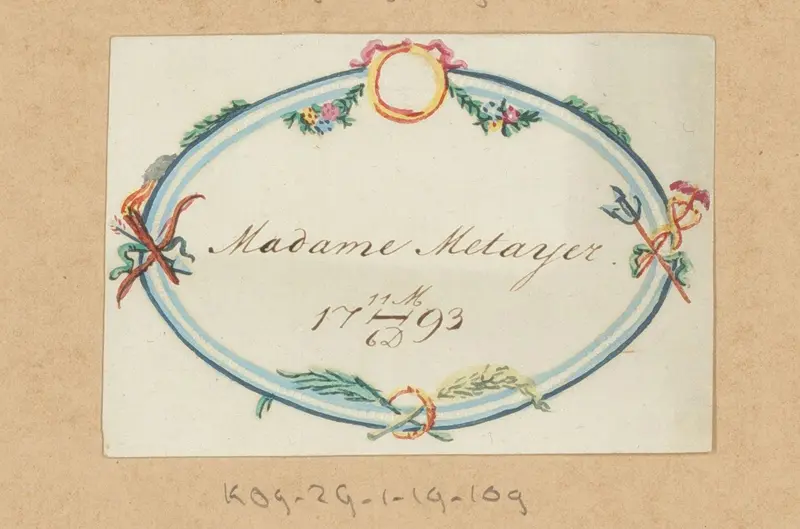 Madame Metayer.
17 11M/6D 93
KOG-2G-1-19-109